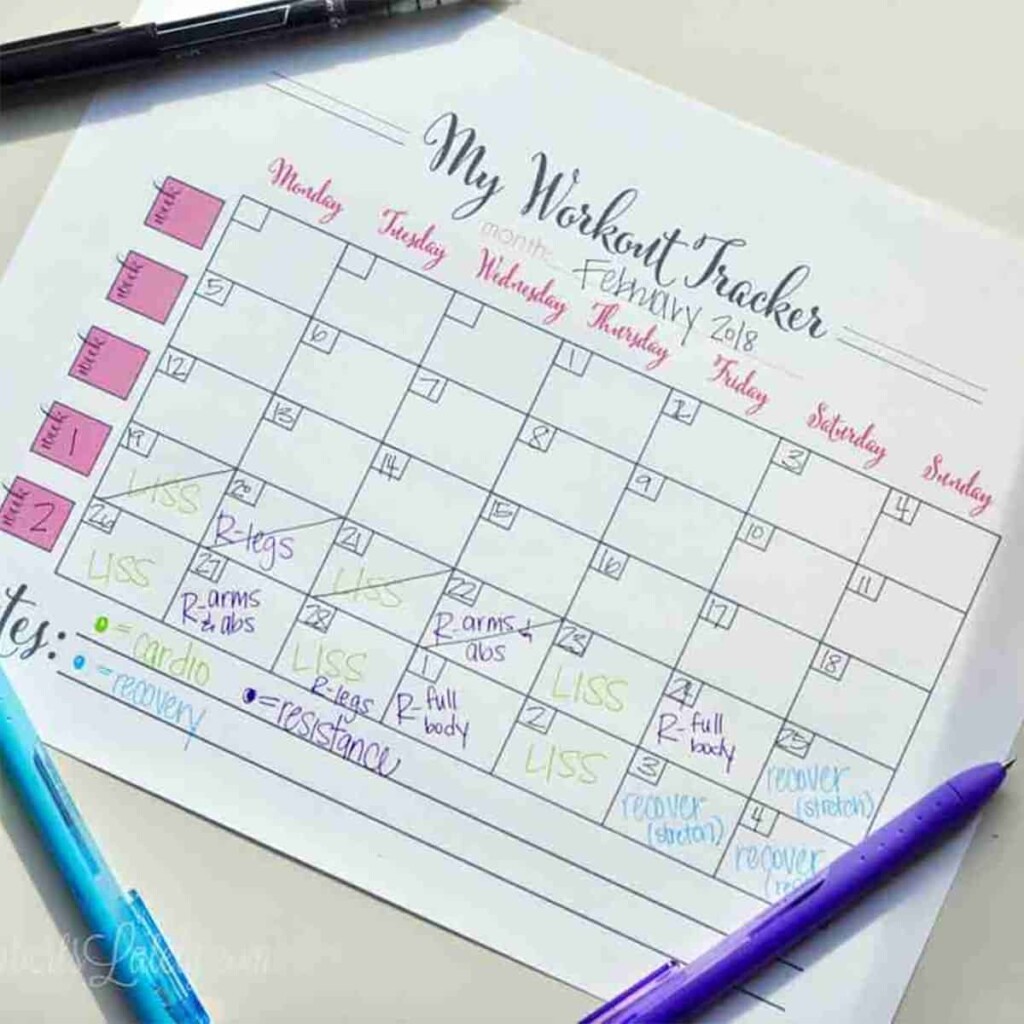 My Workout Tracker
month: February 2018
Monday Tuesday Wednesday Thursday Friday Saturday Sunday
week
1 2 3 4
week
5 6 7 8 9 10 11
week
12 13 14 15 16 17 18
week 1
19 LISS
20 R-legs
21 LISS
22 R-arms & abs
23 LISS
24 R-full body
25 recover (stretch)
week 2
26 LISS
27 R-arms & abs
28 LISS R-legs
1 R-full body
2 LISS
3 recover (stretch)
4 recover
= cardio
= recovery
= resistance